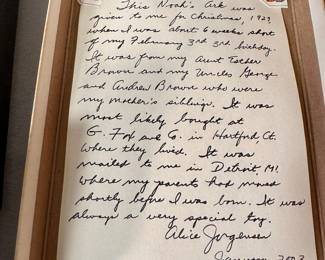 This Noah's Ark was
given to me for Christmas, 1929
when I was about 6 weeks short
of my February 3rd 3rd birthday.
It was from my Aunt Esther
Brown and my Uncles George
and Andrew Brown who were
my mother's siblings. It was
most likely bought at
G. Fox and Co. in Hartford, Ct.
where they lived. It was
mailed to me in Detroit, MI.
where my parents had moved
shortly before I was born. It was
always a very special toy.
Alice Jorgensen
January 2003